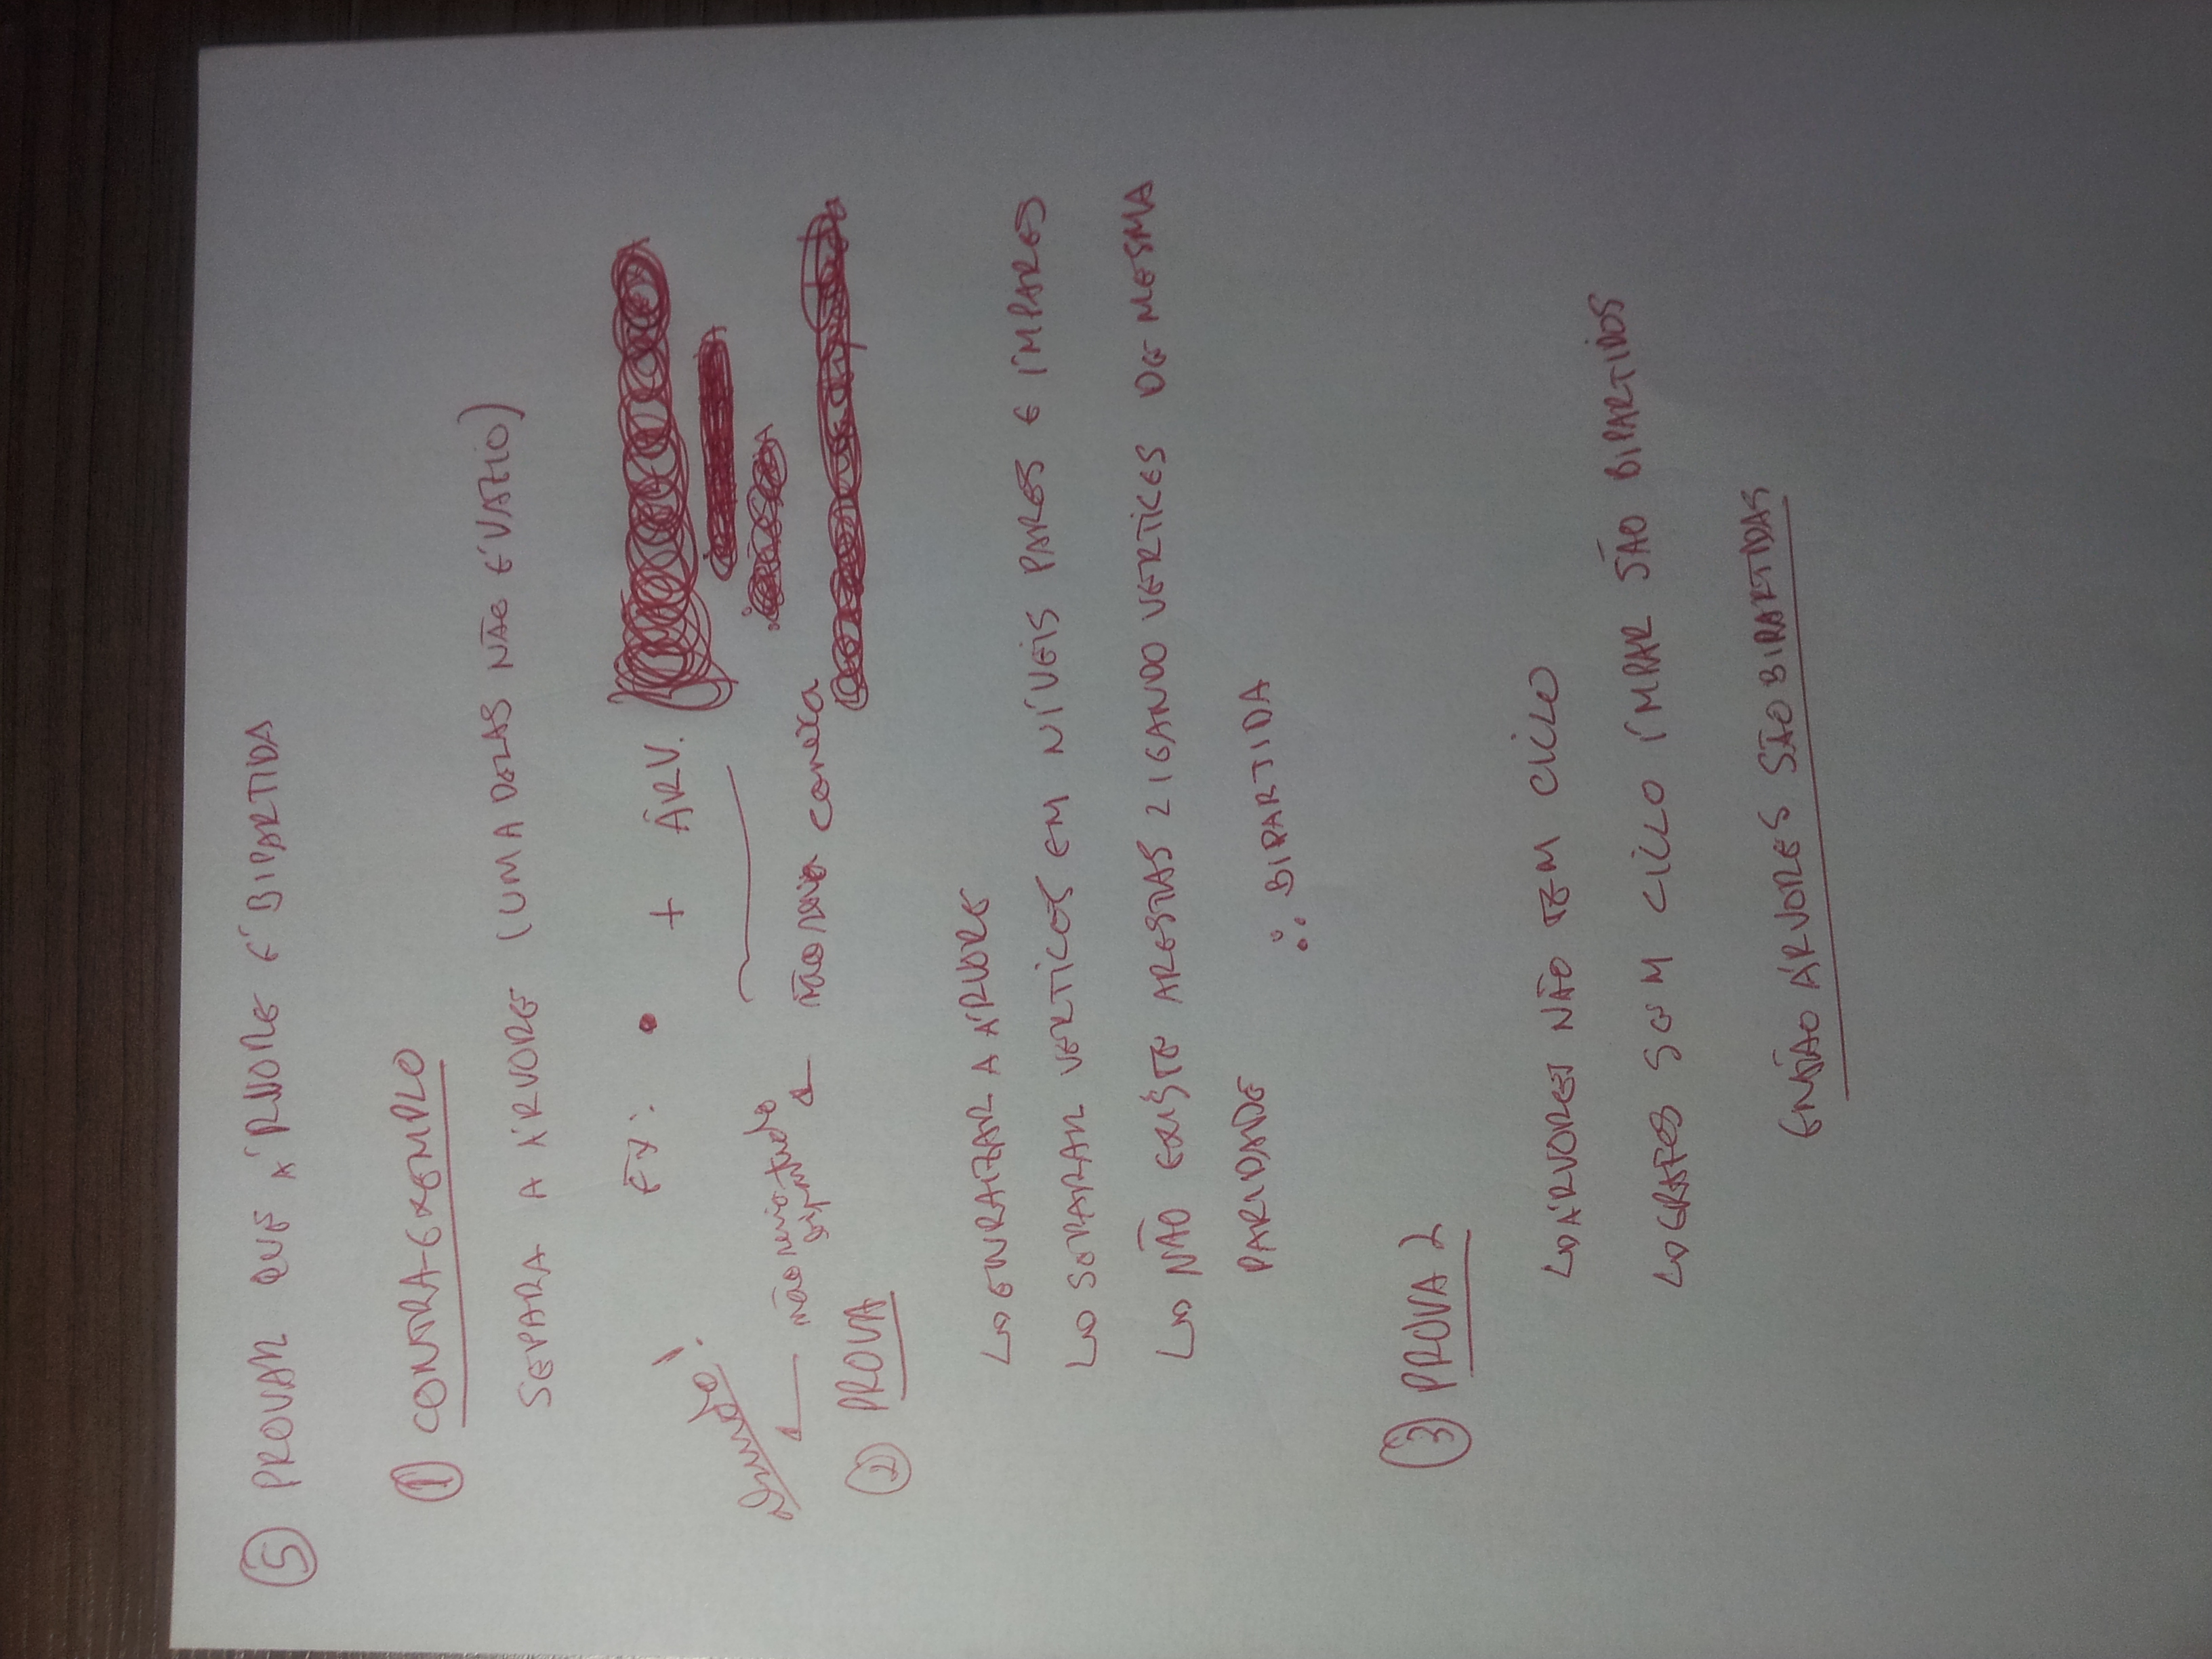 ⑤ PROVAR QUE ÁRVORE É BIPARTIDA
① CONTRA-EXEMPLO
SEPARA A ÁRVORE (UMA DELAS NÃO É VAZIO)
EX: • + ÁRV.
não seria conexa
não seria
② PROVA
↳ ENRAIZAR A ÁRVORE
↳ SEPARAR VERTICES EM NÍVEIS PARES E ÍMPARES
↳ NÃO EXISTE ARESTAS LIGANDO VERTICES DE MESMA
PARIDADE ∴ BIPARTIDA
③ PROVA 2
↳ ÁRVORES NÃO TEM CICLO
↳ GRAFOS SEM CICLO ÍMPAR SÃO BIPARTIDOS
ENTÃO ÁRVORES SÃO BIPARTIDAS